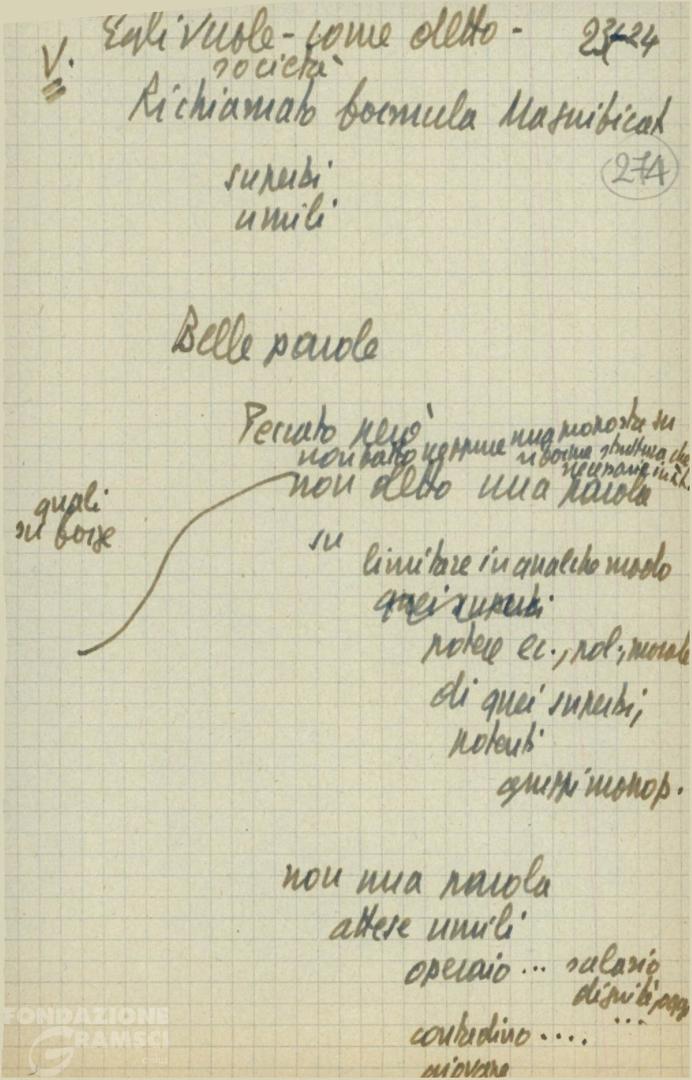 V. Egli vuole - come detto - 23-24
società
Richiamato formula Magnificat
274
superbi
umili
Belle parole
Peccato però
non fatto neppure una proposta su
riforme struttura che
necessarie in
non detto una parola
quali
su forze
su
limitare in qualche modo
quei superbi
potere ec., pol., morale
di quei superbi,
potenti
gruppi monop.
non una parola
attese umili
operaio ... salario
dignità
...
contadino ....
giovane
FONDAZIONE
GRAMSCI